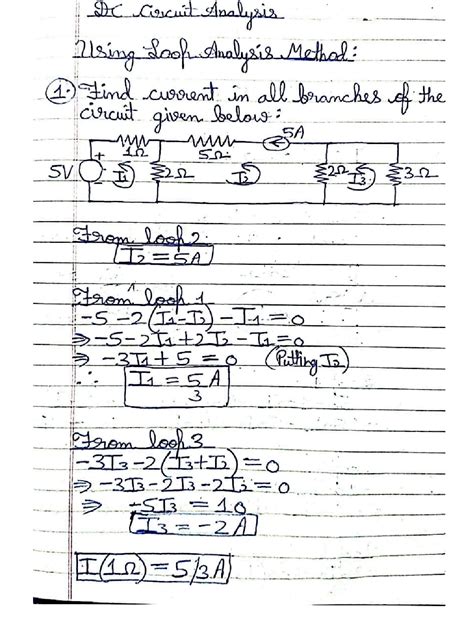 DC Circuit Analysis
Using Loop Analysis Method:
1. Find current in all branches of the
circuit given below:
5A
1Ω 5Ω
5V + - I1 2Ω I2 2Ω I3 3Ω
From loop 2
I2 = 5A
From loop 1
-5 -2(I1-I2) -I1 = 0
⇒ -5-2I1+2I2-I1=0
⇒ -3I1+5 = 0 (Putting I2)
∴ I1 = 5/3 A
From loop 3
-3I3-2(I3+I2)=0
⇒ -3I3-2I3-2I2=0
⇒ -5I3 = 10
I3 = -2A
I(1Ω) = 5/3 A